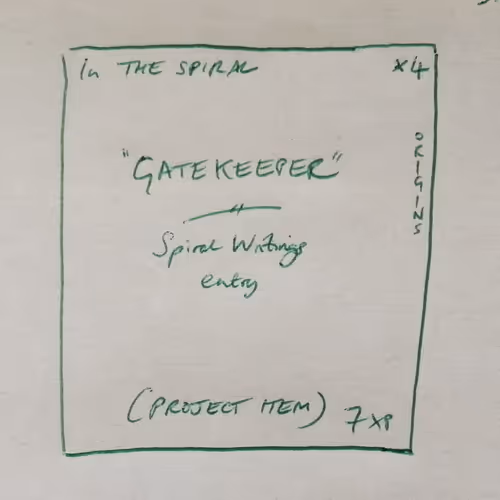 In THE SPIRAL
x4
ORIGINS
"GATEKEEPER"
Spiral Writings
entry
(PROJECT ITEM)
7 XP